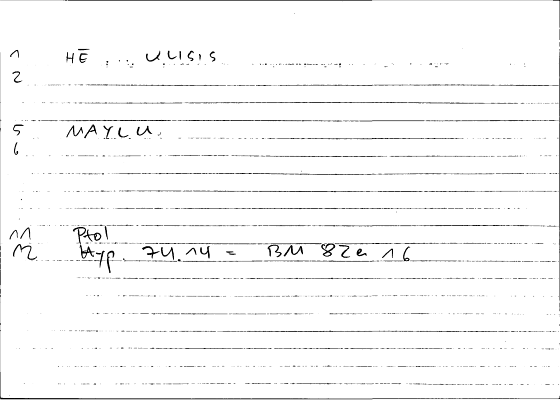 1 HĒ ... ULISIS
2
5 MAYLU.
6
11 Ptol
12 Hyp. 74.14 = BM 82a 16